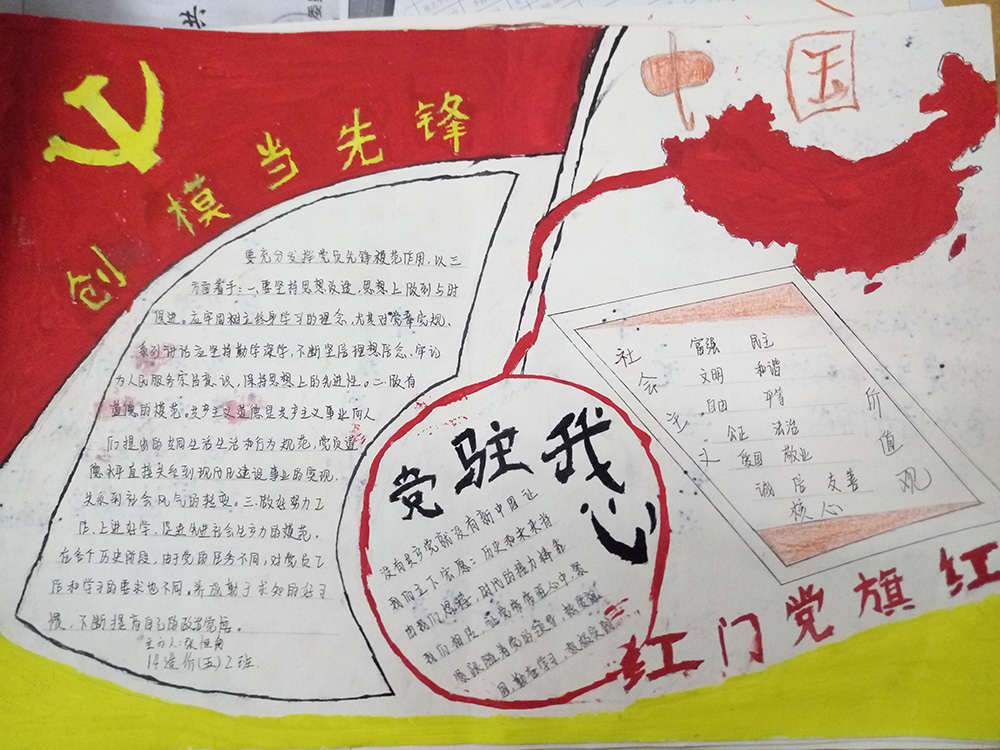 中国
创模当先锋
要充分发挥党员先锋模范作用,以三
方面着手:一、要坚持思想改造,思想上做到与时
俱进。应牢固树立终身学习的理念,尤其对党章党规、
系列讲话应坚持勤学深学,不断坚信理想信念,牢记
为人民服务宗旨意识,保持思想上的先进性。二、做有
道德的模范。共产主义道德是共产主义事业向人
们提出的共同生活生活和行为规范,党员道
德水平直接关系到现代化建设事业的实现,
关系到社会风气的转变。三、做好努力工
作、上进好学、促进先进社会生产力的模范。
在各个历史阶段,由于党的任务不同,对党员工
作和学习的要求也不同。养成勤于求知的好习
惯,不断提高自己的政治觉悟。
主办人:张恒
14造价(五)2班
党驻我心
没有共产党就没有新中国让
我们立下宏愿:历史和未来指
出我们保证,时代的接力棒靠
我们相
紧跟随着党的领导,热爱祖
国,勤奋学习,积极
社会主义
富强 民主
文明 和谐
自由 平等
公正 法治
爱国 敬业
诚信 友善
核心
价值观
红门党旗红